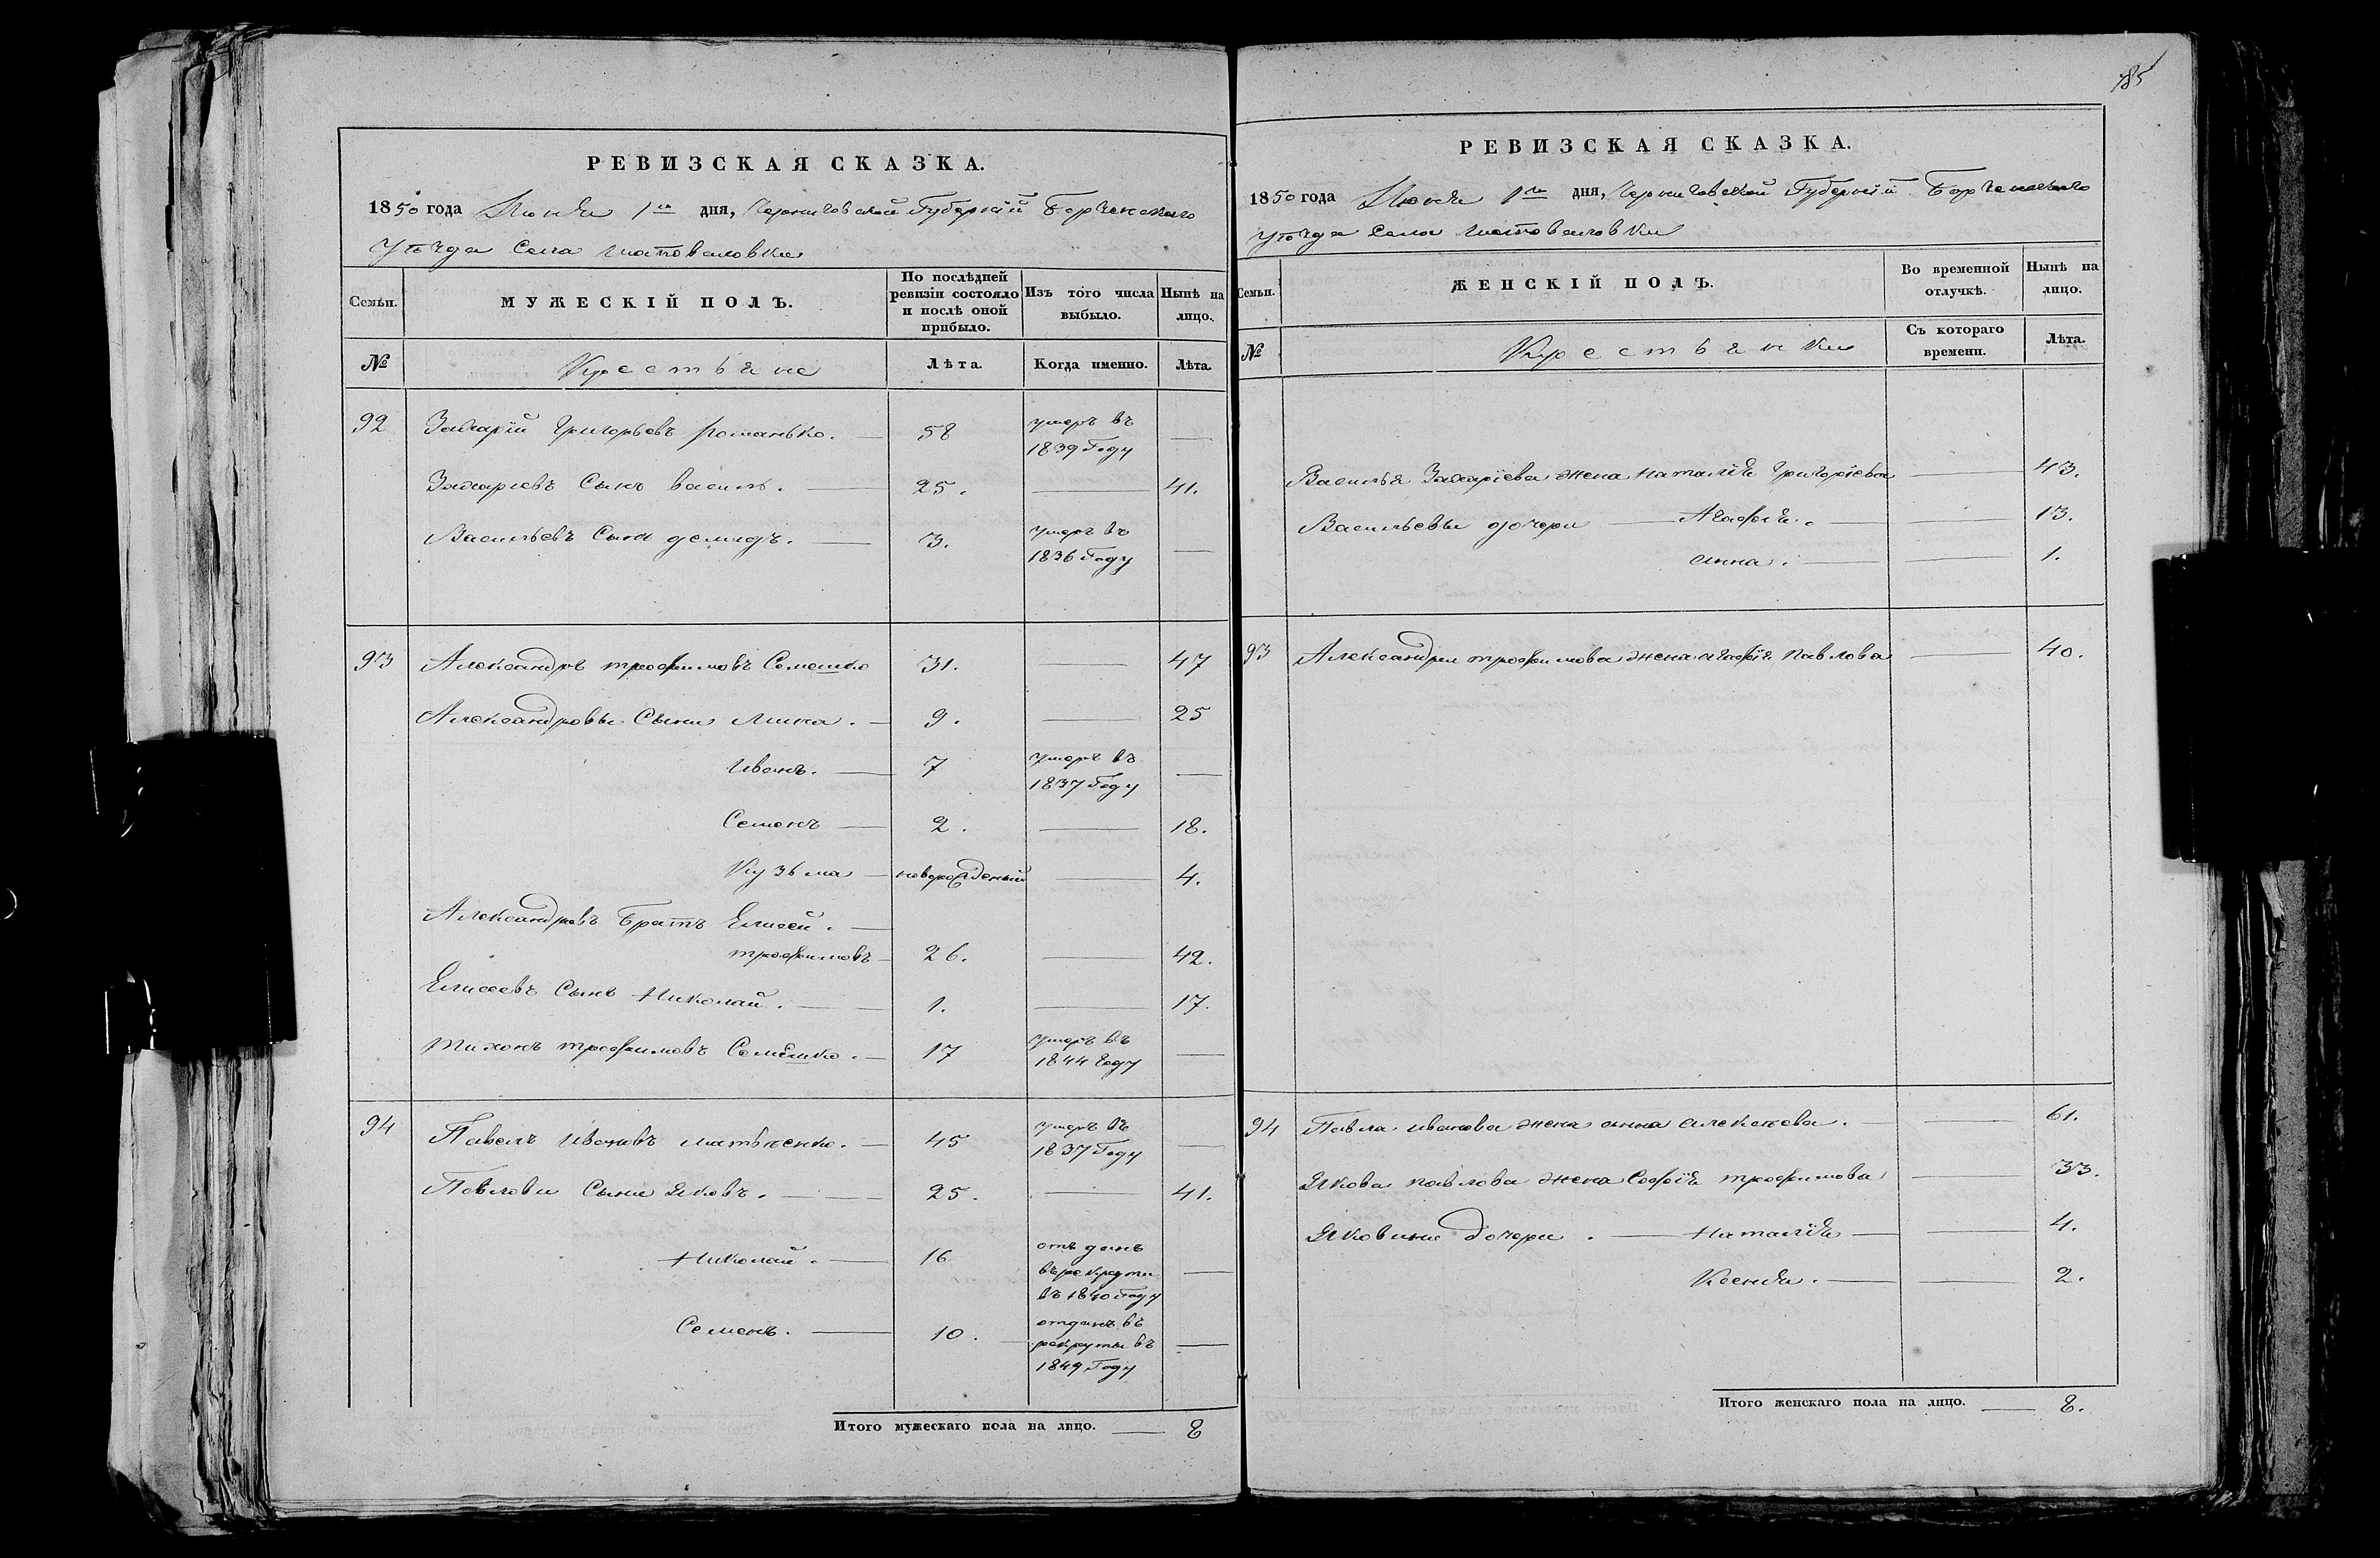 785
РЕВИЗСКАЯ СКАЗКА.
1850 года Июня 1го дня, Черниговской Губернiй Борзенского
Уѣзда Села Шаповаловки
Семьи.
МУЖЕСКІЙ ПОЛЪ.
По послѣдней ревизіи состояло и послѣ оной прибыло.
Изъ того числа выбыло.
Нынѣ на лицо.
№
Крестьяне
Лѣта.
Когда именно.
Лѣта.
92 Захарій Григорьевъ Романько. — 58 умеръ въ 1839 Году —
Захаріевъ Сынъ василь. — 25. — 41.
Васильевъ Сынъ демидъ. — 3. умеръ въ 1836 Году —
93 Александръ трофимовъ Семешко 31. — 47
Александровы Сыни Мина. — 9. — 25
Иванъ. — 7 умеръ въ 1837 Году —
Семенъ — 2. — 18.
Кузьма — новорожденый — 4.
Александровъ Братъ Елисей. —
трофимовъ — 26. — 42.
Елисеевъ Сынъ Николай. — 1. — 17.
Тихонъ трофимовъ Семешко. — 17 умеръ въ 1844 году —
94 Павелъ Ивановъ матѣенко. — 45 умеръ въ 1837 Году —
Павлови Сыни Яковъ. — 25. — 41.
Николай. — 16 отъ данъ въ рекруты въ 1840 Году —
Семенъ. — 10. — отданъ въ рекруты въ 1849 Году —
Итого мужескаго пола на лицо. — 8
РЕВИЗСКАЯ СКАЗКА.
1850 года Июня 1го дня, Черниговской Губернiй Борзенского
уѣзда Села Шаповаловки
Семьи.
ЖЕНСКІЙ ПОЛЪ.
Во временной отлучкѣ.
Нынѣ на лицо.
№
Крестьянки
Съ котораго времени.
Лѣта.
Василья Захаріева жена Наталія Григоріева — 43.
Васильевы дочери — Агафія. — 13.
анна. — 1.
93 Александра трофимова жена агафія Павлова — 40.
94 Павла иванова жена анна алексѣева. — 61.
Якова павлова жена Софія трофимова — 33.
Яковини дочери. — Наталія — 4.
Ксенія. — 2.
Итого женскаго пола на лицо. — 8.